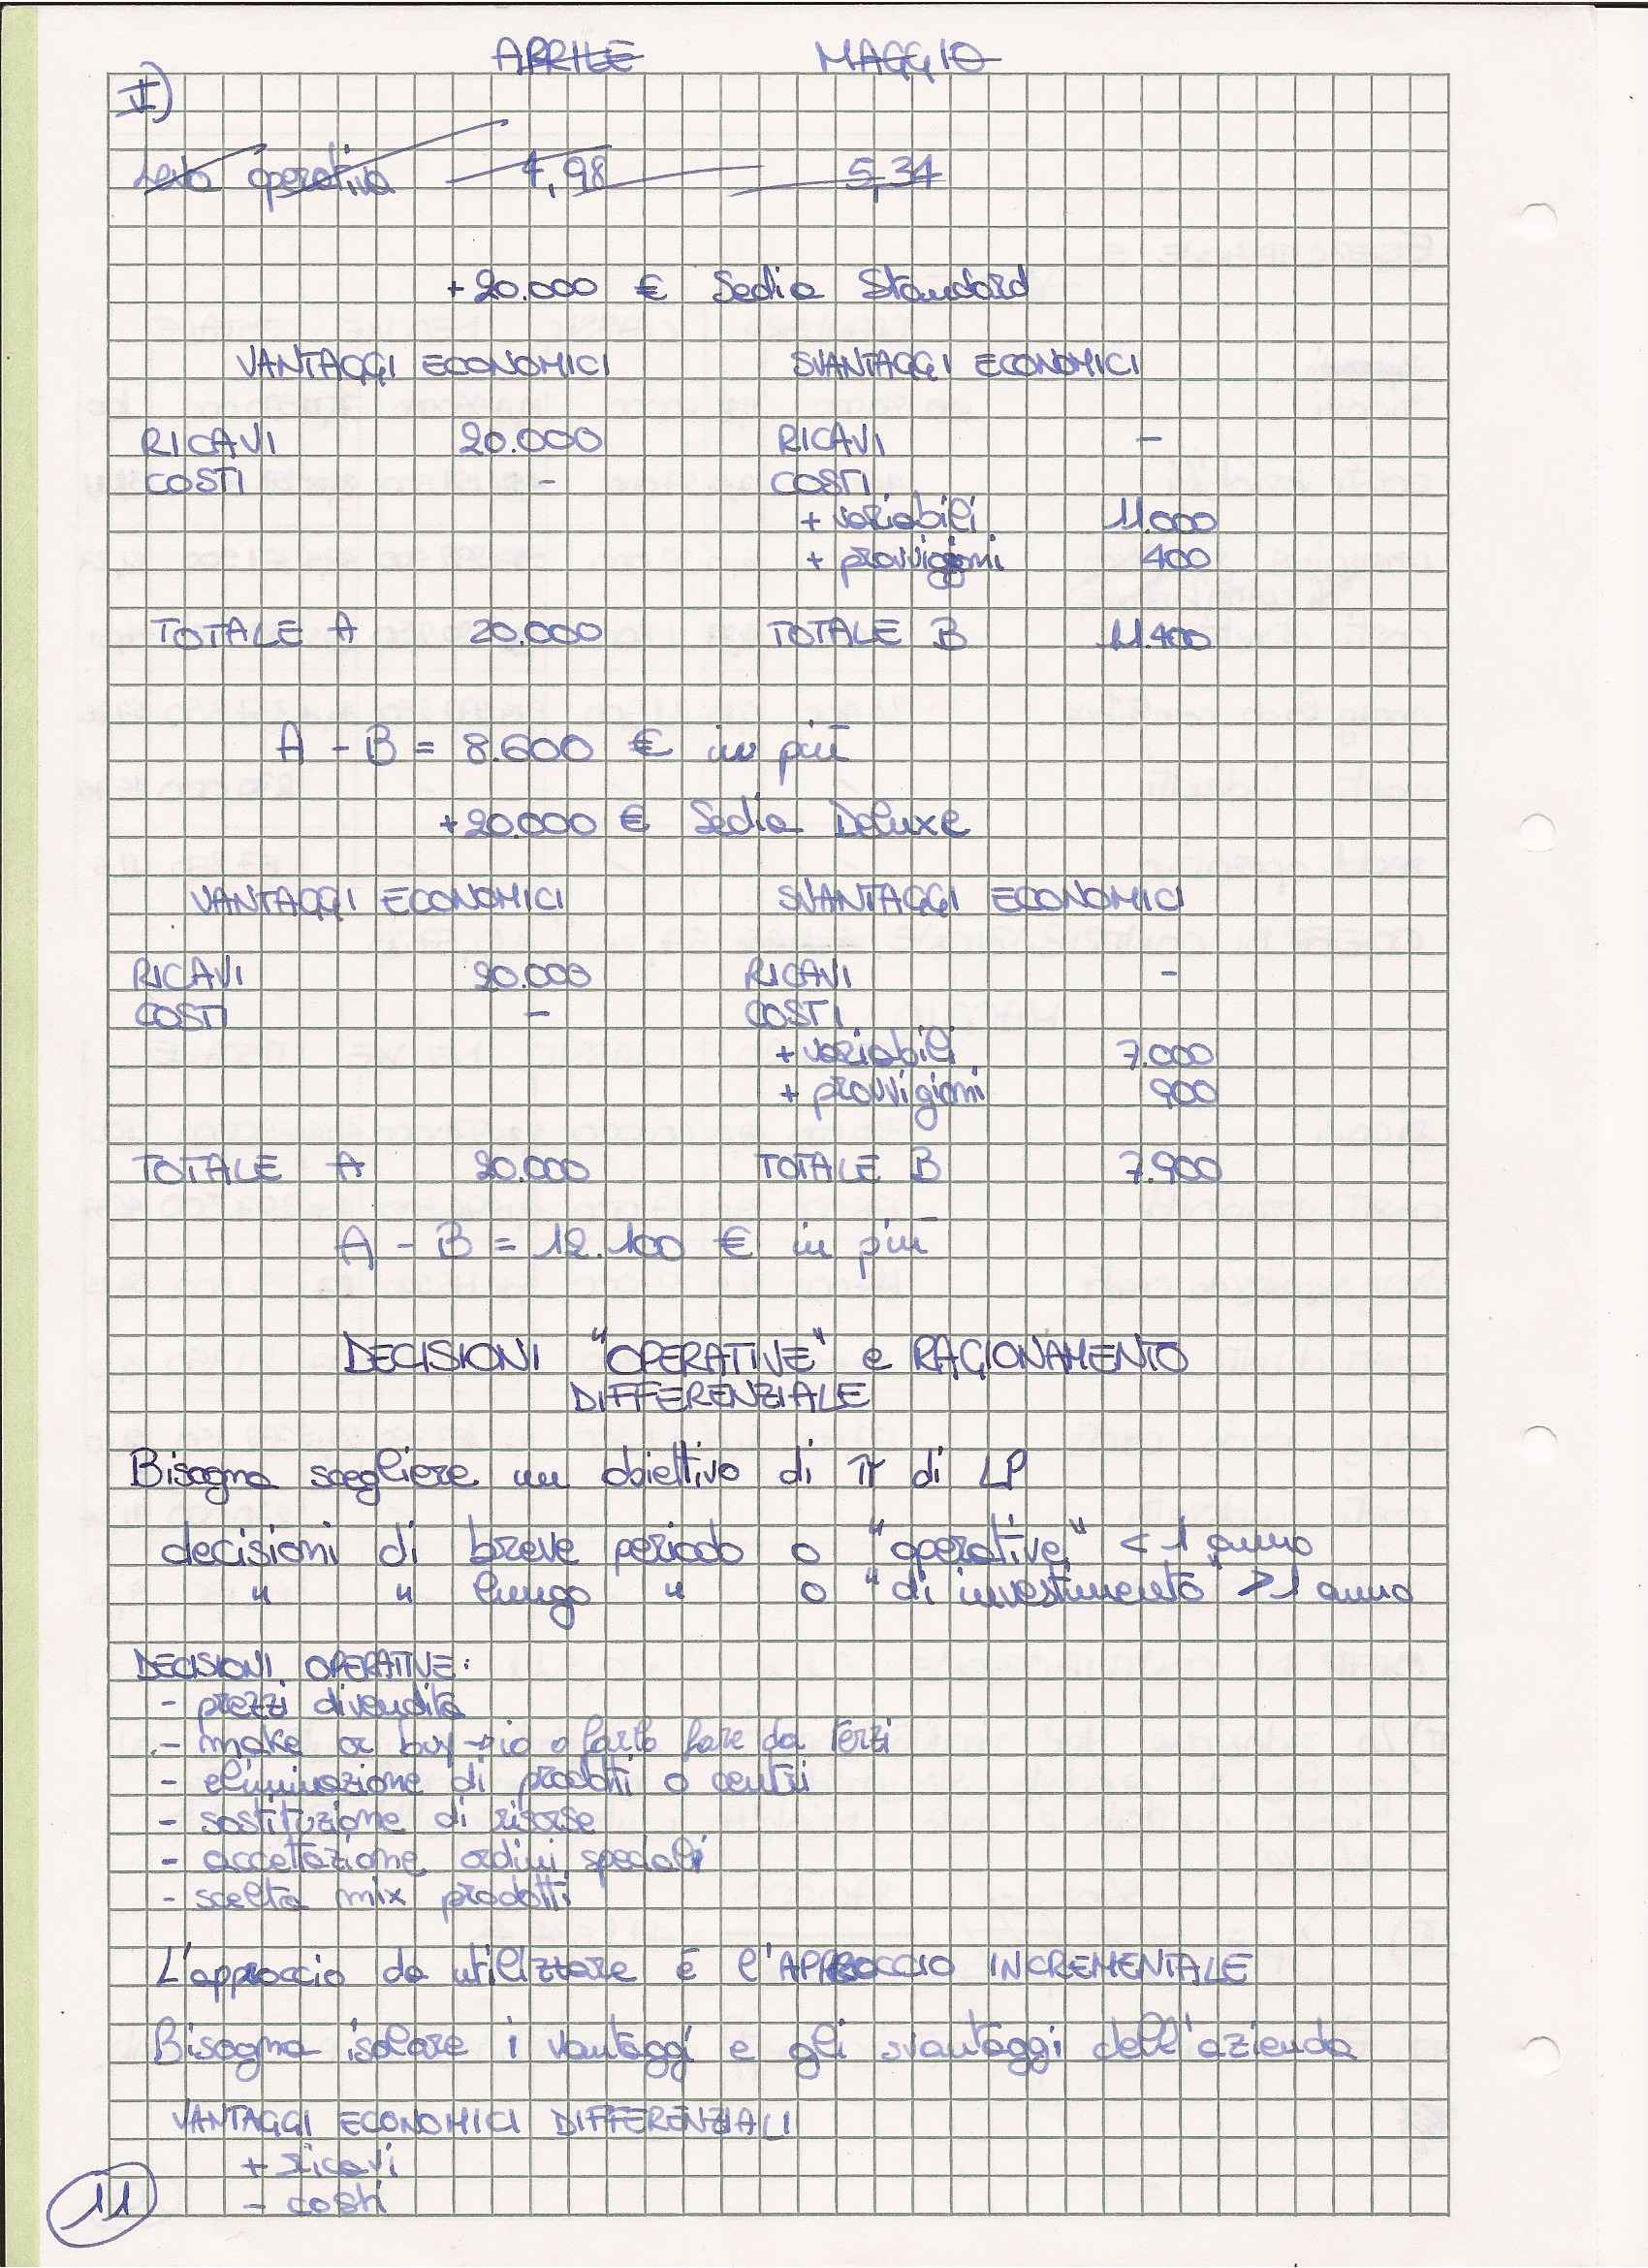 APRILE MAGGIO
V)
Leva operativa 4,98 5,34
+20.000 € Sedia Standard
VANTAGGI ECONOMICI SVANTAGGI ECONOMICI
RICAVI 20.000 RICAVI -
COSTI - COSTI
+ variabili 11.000
+ provvigioni 400
TOTALE A 20.000 TOTALE B 11.400
A - B = 8.600 € in più
+20.000 € Sedia Deluxe
VANTAGGI ECONOMICI SVANTAGGI ECONOMICI
RICAVI 20.000 RICAVI -
COSTI - COSTI
+ variabili 7.000
+ provvigioni 900
TOTALE A 20.000 TOTALE B 7.900
A - B = 12.100 € in più
DECISIONI "OPERATIVE" e RAGIONAMENTO
DIFFERENZIALE
Bisogna scegliere un obiettivo di π di LP
decisioni di breve periodo o "operative" < 1 anno
" " lungo " o "di investimento" > 1 anno
DECISIONI OPERATIVE:
- prezzi di vendita
- make or buy → io o farlo fare da terzi
- eliminazione di prodotti o centri
- sostituzione di risorse
- accettazione ordini speciali
- scelta mix prodotti
L'approccio da utilizzare è l'APPROCCIO INCREMENTALE
Bisogna isolare i vantaggi e gli svantaggi dell'azienda
VANTAGGI ECONOMICI DIFFERENZIALI
+ ricavi
- costi
11